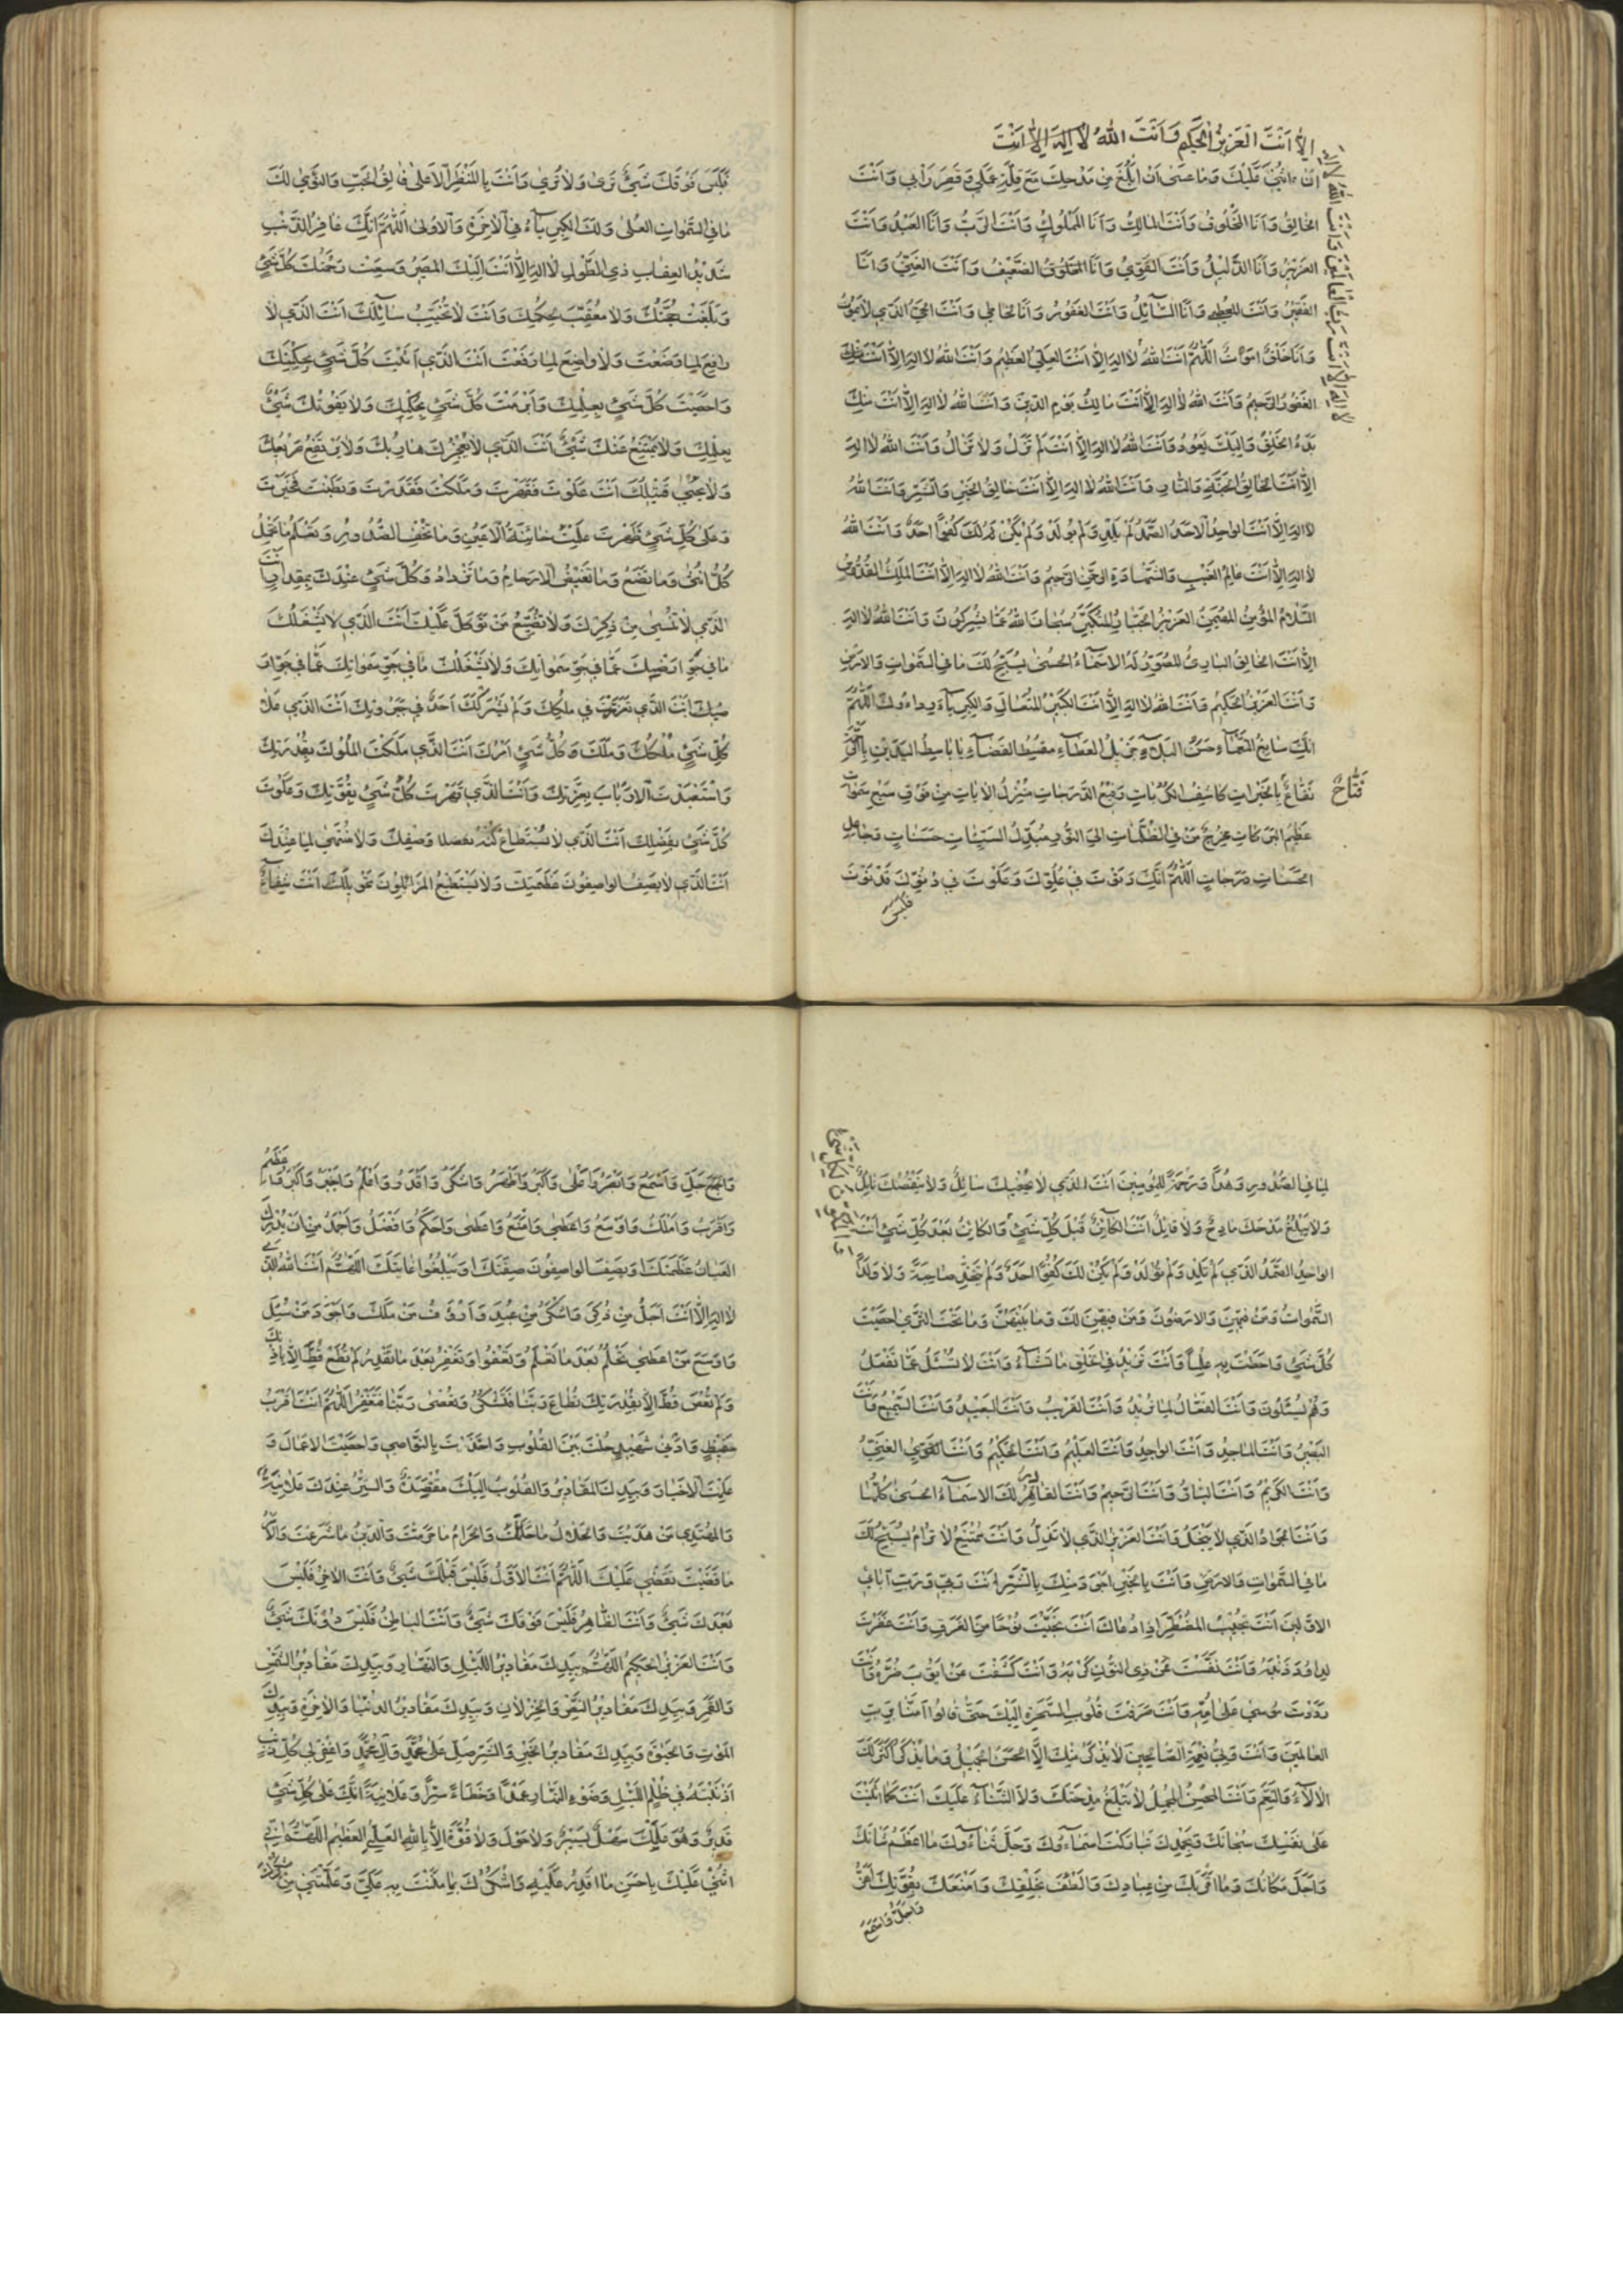 إِلَّا أَنْتَ الْعَزِيزُ الْحَكِيمُ وَأَنْتَ اللهُ لَا إِلٰهَ إِلَّا أَنْتَ
لا إله إلا أنت رب العالمين وأنت الله
أن أثني عليك وما عسى أن أبلغ من مدحك مع قلة عملي وقصر رأيي وأنت
الخالق وأنا المخلوق وأنت المالك وأنا المملوك وأنت الرب وأنا العبد وأنت
العزيز وأنا الذليل وأنت القوي وأنا المخلوق الضعيف وأنت الغني وأنا
الفقير وأنت المعطي وأنا السائل وأنت الغفور وأنا الخاطي وأنت الحي الذي لا يموت
وأنا خلق أموت اللهم أنت الله لا إله إلا أنت العلي العظيم وأنت الله لا إله إلا أنت
الغفور الرحيم وأنت الله لا إله إلا أنت مالك يوم الدين وأنت الله لا إله إلا أنت منك
بدء الخلق وإليك يعود وأنت الله لا إله إلا أنت لم تزل ولا تزال وأنت الله لا إله
إلا أنت الخالق الجنة والنار وأنت الله لا إله إلا أنت خالق الخير والشر وأنت الله
لا إله إلا أنت الواحد الأحد الصمد لم يلد ولم يولد ولم يكن لك كفوا أحد وأنت الله
لا إله إلا أنت عالم الغيب والشهادة الرحمن الرحيم وأنت الله لا إله إلا أنت الملك القدوس
السلام المؤمن المهيمن العزيز الجبار المتكبر سبحان الله عما يشركون وأنت الله لا إله
إلا أنت الخالق البارئ المصور له الأسماء الحسنى يسبح لك ما في السموات والأرض
وأنت العزيز الحكيم وأنت الله لا إله إلا أنت الكبير المتعال والكبرياء رداءك اللهم
إنك سابغ النعماء حسن البلاء جزيل العطاء مقسط القضاء يا باسط اليدين
نفاع بالخيرات كاشف الكربات رفيع الدرجات منزل الآيات من فوق سبع سموات
فتاح
عظيم البركات مخرج من في الظلمات إلى النور مبدل السيئات حسنات وجاعل
الحسنات درجات اللهم إنك دنوت في علوك وعلوت في دنوك فدنوت
فليس
فليس فوقك شيء ترى ولا ترى وأنت بالمنظر الأعلى فالق الحب والنوى لك
ما في السموات العلى ولك الكبرياء في الآخرة والأولى اللهم إنك غافر الذنب
شديد العقاب ذي الطول لا إله إلا أنت إليك المصير وسعت رحمتك كل شيء
وبلغت حجتك ولا معقب لحكمك وأنت لا تخيب سائلك أنت الذي لا
رافع لما وضعت ولا واضع لما رفعت أنت الذي أثبت كل شيء بحكمتك
وأحصيت كل شيء بعلمك وأبرمت كل شيء بحكمك ولا يفوتك شيء
بعلمك ولا يمتنع عنك شيء أنت الذي لا يعجزك هاربك ولا يرتفع صريعك
ولا يحيى قتيلك أنت علوت فقهرت وملكت فقدرت وبطنت فخبرت
وعلى كل شيء ظهرت علمت خائنة الأعين وما تخفي الصدور وتعلم ما تحمل
كل أنثى وما تضع وما تغيض الأرحام وما تزداد وكل شيء عندك بمقدار أنت
الذي لا تنسى من ذكرك ولا تضيع من توكل عليك أنت الذي لا يشغلك
ما في جو أرضك عما في جو سمواتك ولا يشغلك ما في جو سمواتك عما في جو
أرضك أنت الذي تعززت في ملكك ولم يشركك أحد في جبروتك أنت الذي علا
كل شيء ملكك وملك كل شيء أمرك أنت الذي ملكت الملوك بقدرتك
واستعبدت الأرباب بعزتك وأنت الذي قهرت كل شيء بقوتك وعلوت
كل شيء بفضلك أنت الذي لا يستطاع كنه وصفك ولا منتهى لما عندك
أنت الذي لا يصف الواصفون عظمتك ولا يستطيع المزايلون تحويلك أنت شفاء
لما في الصدور وهدى ورحمة للمؤمنين أنت الذي لا يحفيك سائل ولا ينقصك نائل
ولا يبلغ مدحك مادح ولا قائل أنت الكائن قبل كل شيء والكائن بعد كل شيء أنت
الواحد الصمد الذي لم تلد ولم تولد ولم يكن لك كفوا أحد ولم تتخذ صاحبة ولا ولدا
السموات ومن فيهن والأرضون ومن فيهن لك وما بينهن وما تحت الثرى أحصيت
كل شيء وأحطت به علما وأنت تزيد في الخلق ما تشاء وأنت لا تسئل عما تفعل
وهم يسئلون وأنت الفعال لما تريد وأنت القريب وأنت البعيد وأنت السميع وأنت
البصير وأنت الماجد وأنت الواحد وأنت العليم وأنت الحكيم وأنت القوي الغني
وأنت الكريم وأنت الباقي وأنت الرحيم وأنت القاهر لك الأسماء الحسنى كلها
وأنت الجواد الذي لا يبخل وأنت العزيز الذي لا تذل وأنت ممتنع لا ترام يسبح لك
ما في السموات والأرض وأنت بالخير أجود منك بالشر أنت ربي ورب آبائي
الأولين أنت تجيب المضطر إذا دعاك أنت نجيت نوحا من الغرق وأنت غفرت
لداود ذنبه وأنت نفست عن ذي النون كربه وأنت كشفت عن أيوب ضره وأنت
رددت موسى على أمه وأنت صرفت قلوب السحرة إليك حتى قالوا آمنا برب
العالمين وأنت ولي نعمة الصالحين لا يذكر منك إلا الحسن الجميل وما يذكر أكثر لك
الآلاء والنعم وأنت المحسن المجمل لا تبلغ مدحتك ولا الثناء عليك أنت كما أثنيت
على نفسك سبحانك وبحمدك تباركت أسماؤك وجل ثناؤك ما أعظم شأنك
وأجل مكانك وما أقربك من عبادك وألطفك بخلقك وأمنعك بقوتك أعز
وأجل وأسمع
وأجل وأسمع وأبصر وأعلى وأكبر وأظهر وأشكر وأقدر وأعلم وأجبر وأكبر
عظم
وأقرب وأملك وأوسع وأعطى وأمنع وأعطى وأحكم وأفضل وأحمد من أن يدرك
العيان عظمتك أو يصف الواصفون صفتك أو يبلغوا غايتك اللهم أنت الله الذي
لا إله إلا أنت أجل من ذكر وأشكر من عبد وأرؤف من ملك وأجود من سئل
وأوسع من أعطى تحلم بعد ما تعلم وتعفو وتغفر بعد ما تقدر لم تطع قط إلا بإذنك
ولم تعص قط إلا بقدرتك تطاع ربنا فتشكر وتعصى ربنا فتغفر اللهم أنت أقرب
حفيظ وأدنى شهيد حلت بين القلوب وأخذت بالنواصي وأحصيت الأعمال و
علمت الأخبار وبيدك المقادير والقلوب إليك مفضية والسر عندك علانية
والمهتدي من هديت والحلال ما حللت والحرام ما حرمت والدين ما شرعت والأمر
ما قضيت تقضي ولا يقضى عليك اللهم أنت الأول فليس قبلك شيء وأنت الآخر فليس
بعدك شيء وأنت الظاهر فليس فوقك شيء وأنت الباطن فليس دونك شيء
وأنت العزيز الحكيم اللهم بيدك مقادير الليل والنهار وبيدك مقادير الشمس
والقمر وبيدك مقادير النصر والخذلان وبيدك مقادير الدنيا والآخرة وبيدك
الموت والحيوة وبيدك مقادير الخير والشر صل على محمد وآل محمد واغفر لي كل ذنب
أذنبته في ظلم الليل وضوء النهار عمدا وخطاء سرا وعلانية إنك على كل شيء
قدير وهو عليك سهل يسير ولا حول ولا قوة إلا بالله العلي العظيم اللهم إني
أثني عليك بأحسن ما أقدر عليه وأشكرك بما مننت به علي وعلمتني من